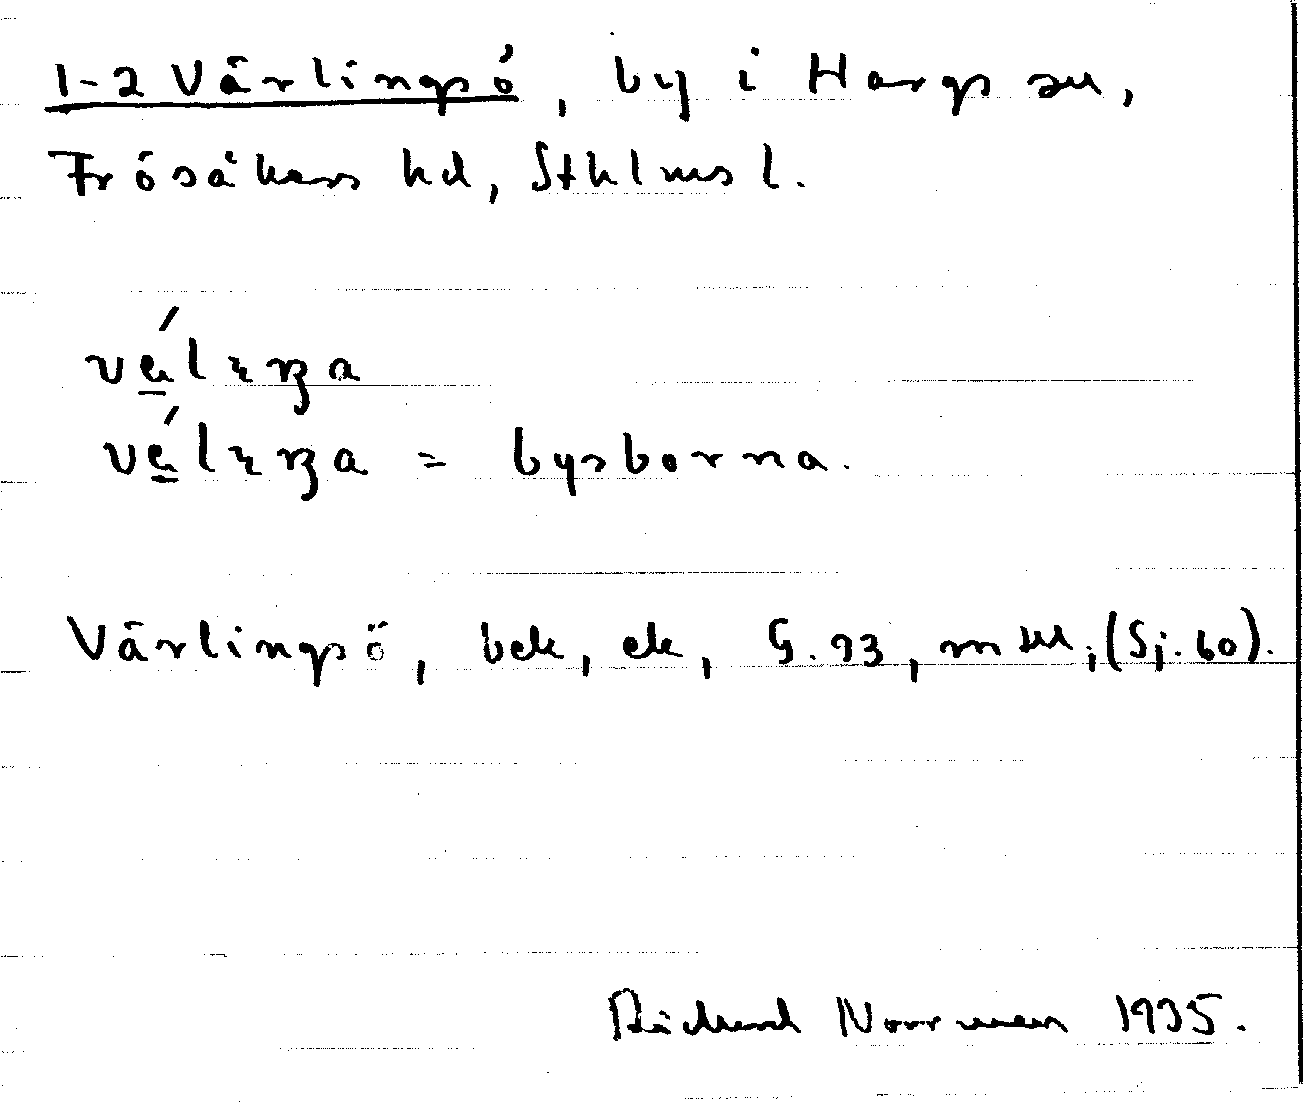 1-2 Värlingsö, by i Hargs sn,
Frösåkers hd, Sthlms l.
= bysborna.
Värlingsö, bek, ek, G.93, m
(Sj. 60).
Rickard Norrman 1935.